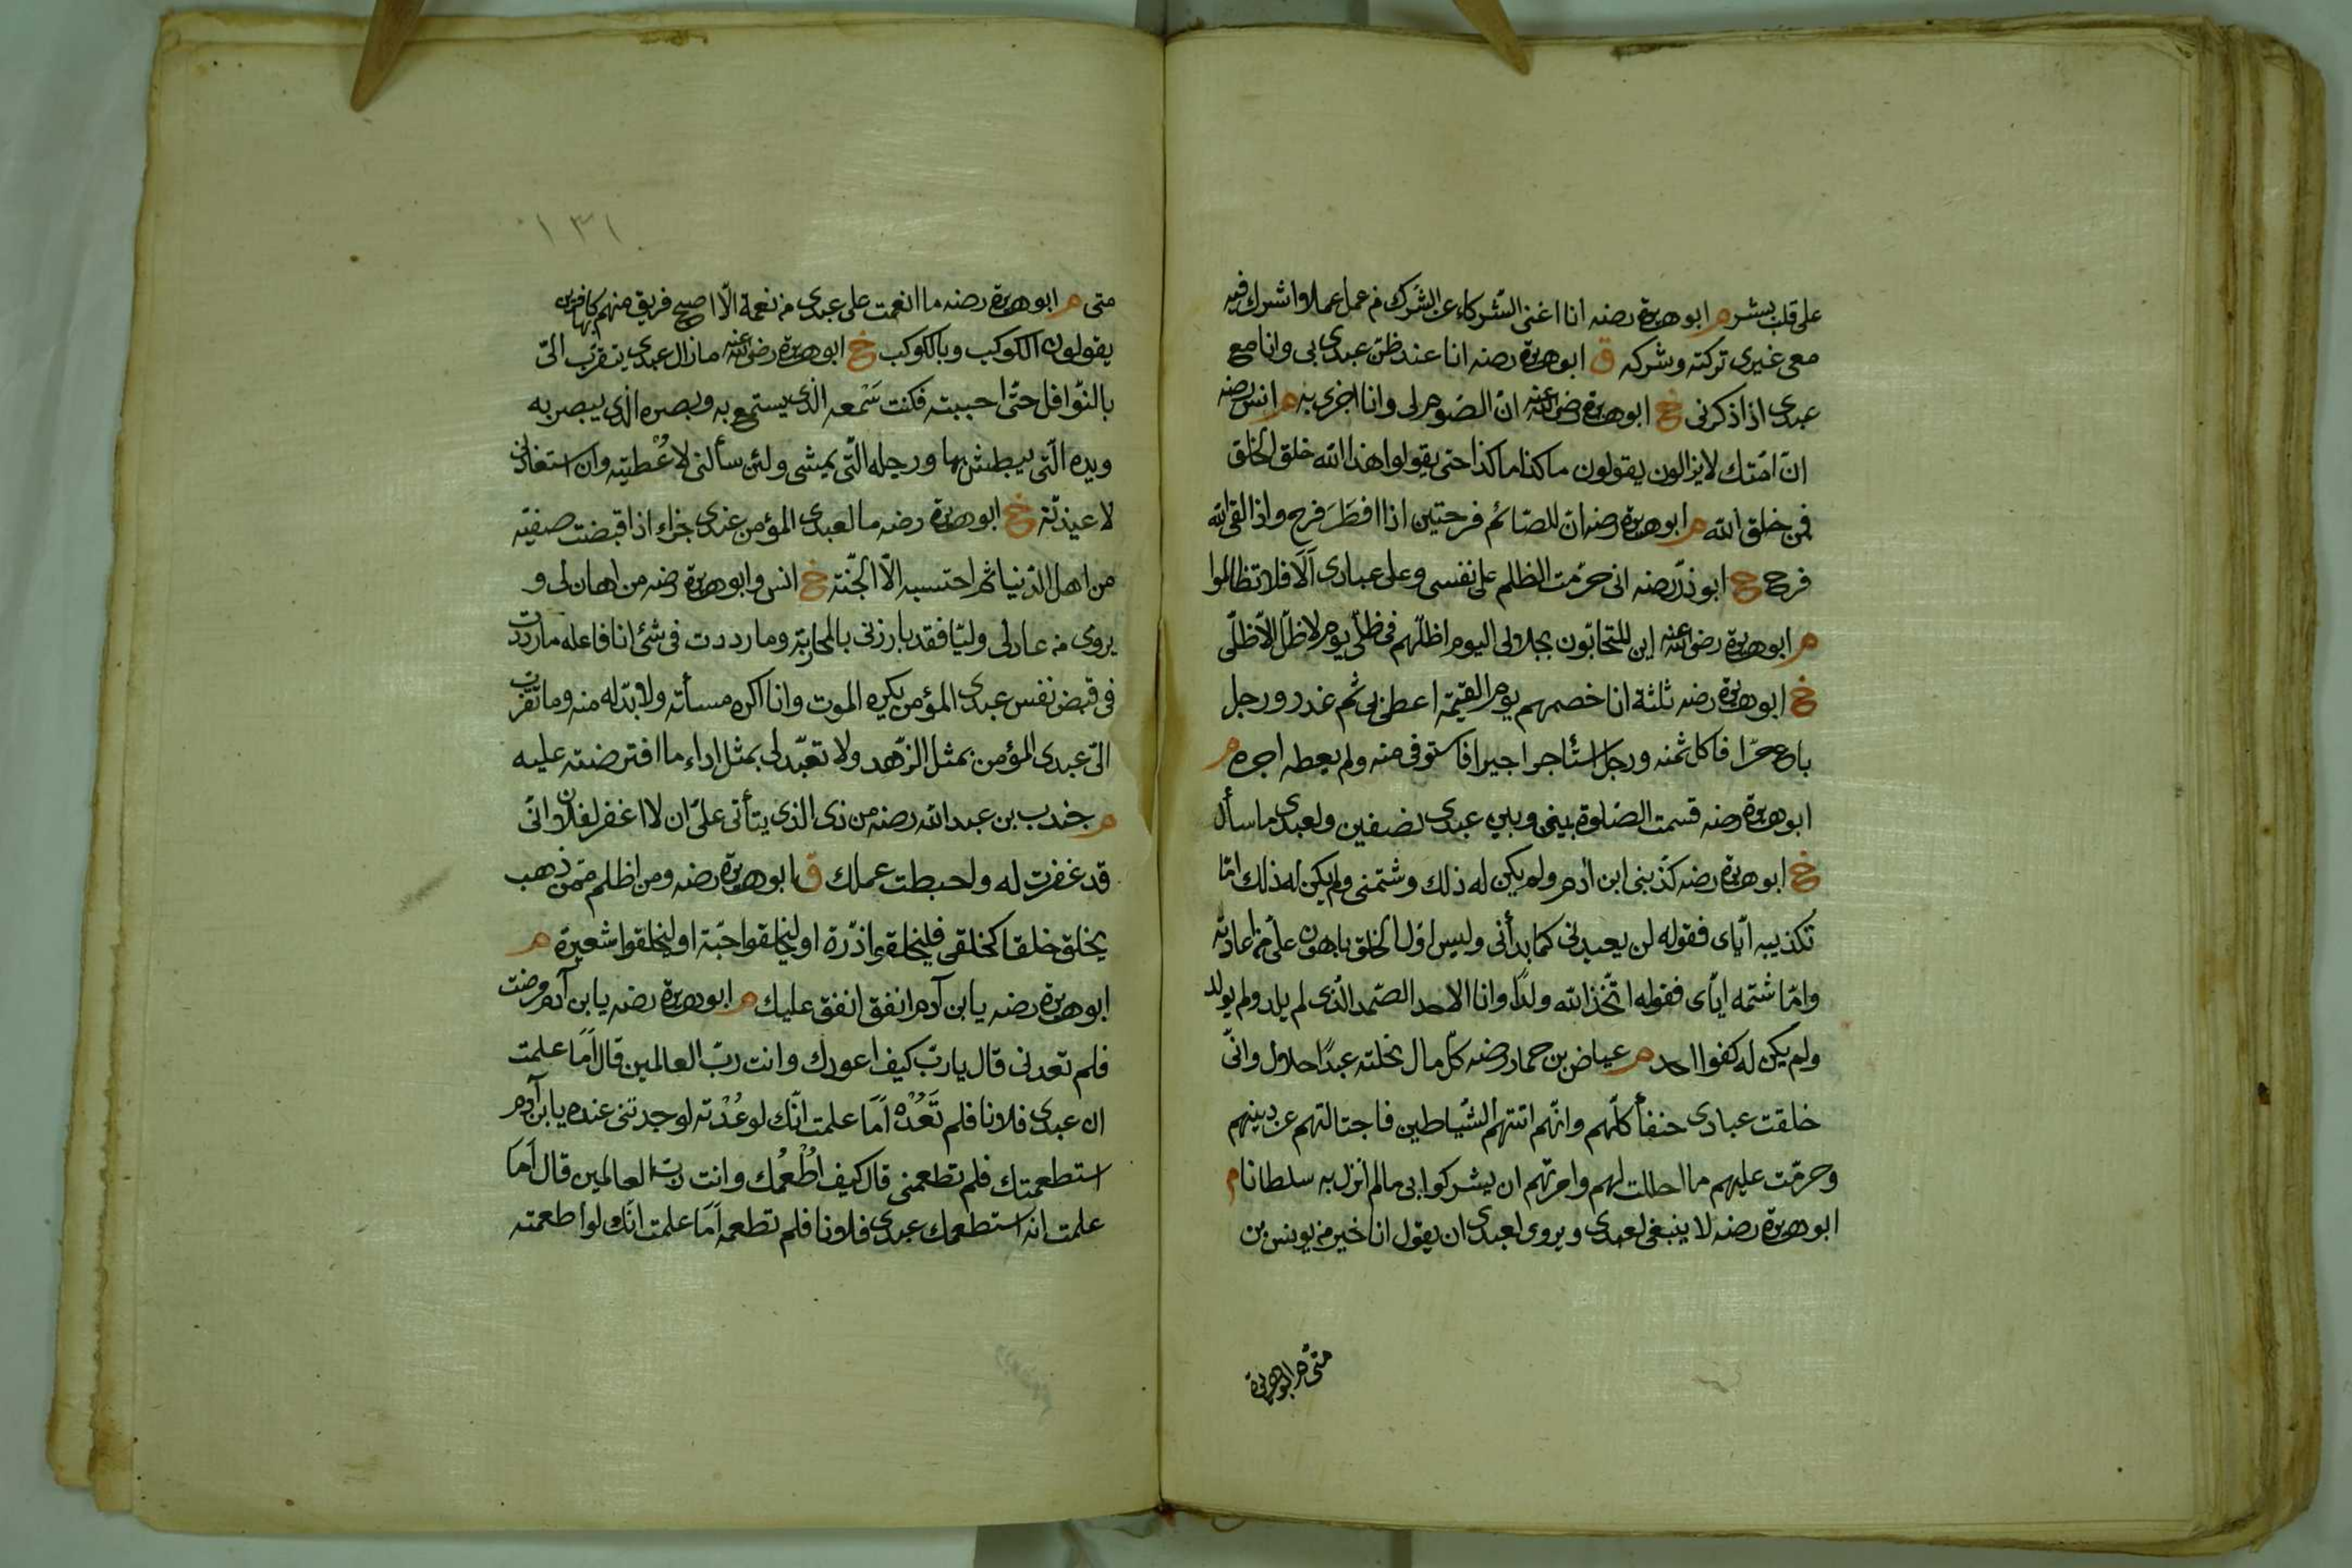 على قلب بشر م ابو هريرة رضه انا اغنى الشركاء عن الشرك من عمل عملا واشرك فيه
معى غيرى تركته وشركه ق ابو هريرة رضه انا عند ظن عبدى بى وانا مع
عبدى اذا ذكرنى خ ابو هريرة رضى الله عنه ان الصوم لى وانا اجزى به م انس رضه
انّ امّتك لا يزالون يقولون ما كذا ما كذا حتى يقولوا هذا الله خلق الخلق
فمن خلق الله م ابو هريرة رضه ان للصّائم فرحتين اذا افطَرَ فرح واذا لقى الله
فرح خ ابو ذرّ رضه انى حرّمت الظلم على نفسى وعلى عبادى اَلَا فلا تظالموا
م ابو هريرة رضى الله عنه اين المتحابّون بجلالى اليوم اظلّهم فى ظلّى يوم لا ظلّ الا ظلّى
خ ابو هريرة رضه ثلثة انا خصمهم يوم القيمة اعطى بى ثم غدر ورجل
باع حرّا فاكل ثمنه ورجل استأجر اجيرا فاستوفى منه ولم يعطه اجره م
ابو هريرة رضه قسمت الصّلوة بينى وبين عبدى نصفين ولعبدى ما سأل
خ ابو هريرة رضه كذّبنى ابن ادم ولم يكن له ذلك وشتمنى ولم يكن له ذلك امّا
تكذيبه ايّاى فقوله لن يعيدنى كما بدأنى وليس اوّل الخلق باهون علىّ من اعادته
وامّا شتمه ايّاى فقوله اتّخذ الله ولدًا وانا الاحد الصّمد الّذى لم يلد ولم يولد
ولم يكن له كفوا احد م عياض بن حمار رضه كلّ مال نحلته عبدًا حلال وانّى
خلقت عبادى حنفأ كلّهم وانّهم اتتهم الشّياطين فاجتالتهم عن دينهم
وحرّمت عليهم ما احللت لهم وامرتهم ان يشركوا بى ما لم انزل به سلطانا م
ابو هريرة رضه لا ينبغى لعبدى ويروى لعبدى ان يقول انا خير من يونس بن
متى م ابو هريرة
١٣١
متى م ابو هريرة رضه ما انعمت على عبدى من نعمة الّا اصبح فريق منهم بها كافرين
يقولون الكوكب وبالكوكب خ ابو هريرة رضى الله عنه ما زال عبدى يتقرّب الىّ
بالنّوافل حتّى احببته فكنت سَمْعه الّذى يستمع به وبصره الّذى يبصر به
ويده الّتى يبطش بها ورجله الّتى يمشى ولئن سألنى لاعْطيته وان استعاذنى
لاعيذنّه خ ابو هريرة رضه ما لعبدى المؤمن عندى جزاء اذا قبضت صفيّه
من اهل الدّنيا ثم احتسبه الّا الجنّة خ انس وابو هريرة رضه من اهان لى و
يروى من عادلى وليّا فقد بارزنى بالمحاربة وما رددت فى شئ انا فاعله ما رددت
فى قبض نفس عبدى المؤمن يكره الموت وانا اكره مسأته ولا بدّ له منه وما تقرّب
الىّ عبدى المؤمن بمثل الزّهد ولا تعبّد لى بمثل اداء ما افترضته عليه
م جندب بن عبد الله رضه من ذى الذى يتألّى علىّ ان لا اغفر لفلان انّى
قد غفرت له واحبطت عملك ق ابو هريرة رضه ومن اظلم ممّن ذهب
يخلق خلقا كخلقى فليخلقوا ذرّة او ليخلقوا حبّة او ليخلقوا شعيرة م
ابو هريرة رضه يا بن آدم انفق انفق عليك م ابو هريرة رضه يا بن آدم مرضت
فلم تعدنى قال يا ربّ كيف اعودك وانت ربّ العالمين قال اَمَا علمت
ان عبدى فلانا فلم تَعُدْه اَمَا علمت انّك لو عُدْته لوجدتنى عنده يا بن آدم
استطعمتك فلم تطعمنى قال كيف اُطْعمُك وانت ربّ العالمين قال اَمَا
علمت انه استطعمك عبدى فلانا فلم تطعمه اَمَا علمت انّك لو اطعمته